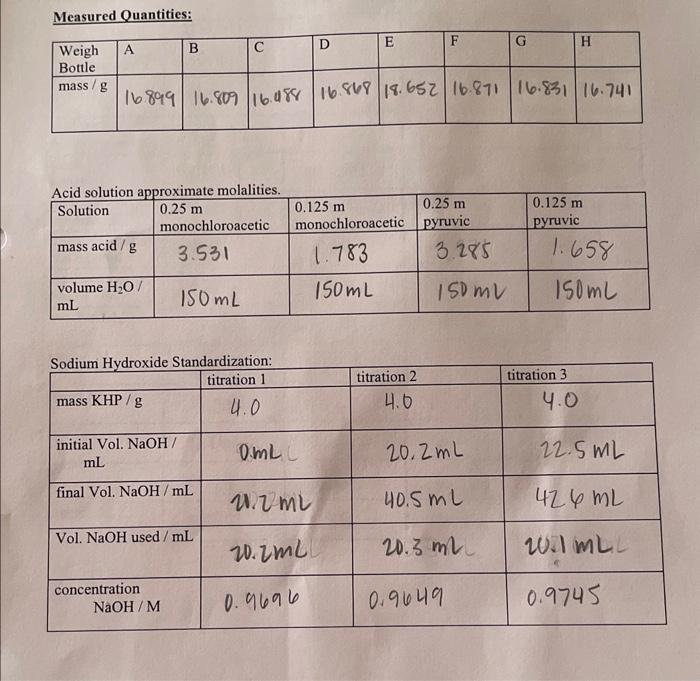 Measured Quantities:
Weigh Bottle A B C D E F G H
mass / g 16.899 16.809 16.988 16.868 18.652 16.871 16.831 16.741
Acid solution approximate molalities.
Solution 0.25 m monochloroacetic 0.125 m monochloroacetic 0.25 m pyruvic 0.125 m pyruvic
mass acid / g 3.531 1.783 3.285 1.658
volume H₂O / mL 150 mL 150 mL 150 mL 150 mL
Sodium Hydroxide Standardization:
titration 1 titration 2 titration 3
mass KHP / g 4.0 4.0 4.0
initial Vol. NaOH / mL 0 mL 20.2 mL 22.5 mL
final Vol. NaOH / mL 20.2 mL 40.5 mL 42.6 mL
Vol. NaOH used / mL 20.2 mL 20.3 mL 20.1 mL
concentration NaOH / M 0.9696 0.9649 0.9745